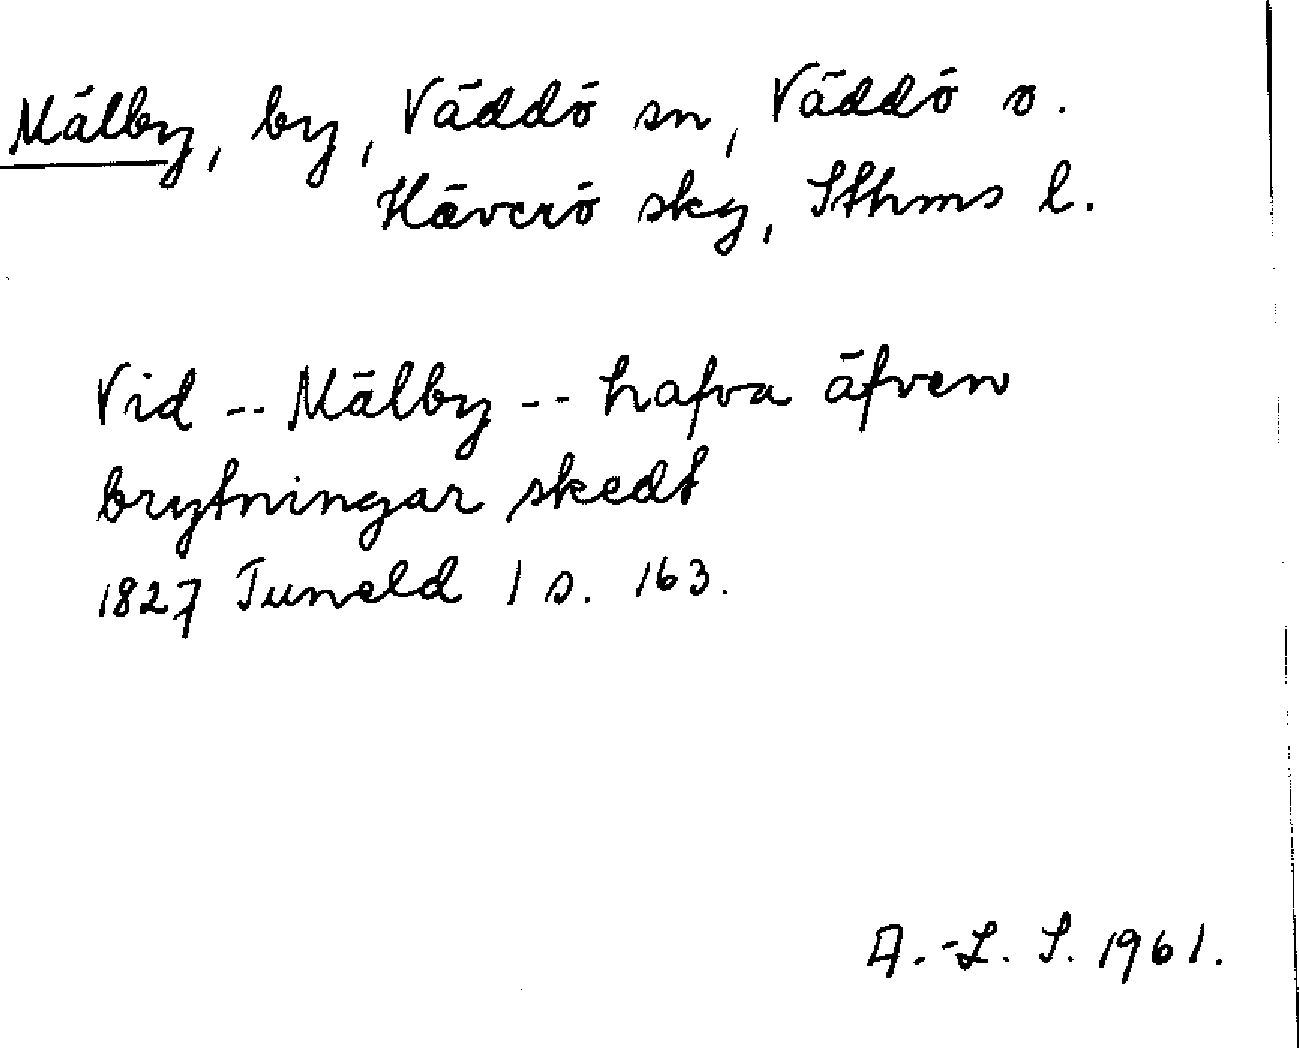 Mälby, by, Väddö sn, Väddö o.
Häverö skg, Sthms l.
Vid -- Mälby -- hafva äfven
brytningar skedt
1827 Tuneld 1 s. 163.
A.-L. S. 1961.